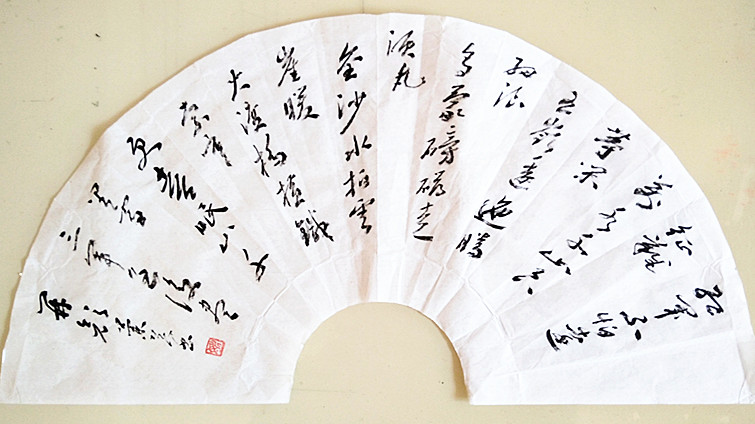 紅軍不怕遠
征難
萬水千山只
等閑
五嶺逶迤騰
細浪
烏蒙磅礴走
泥丸
金沙水拍雲
崖暖
大渡橋橫鐵
索寒
更喜岷山千
里雪
三軍過後盡
開顏